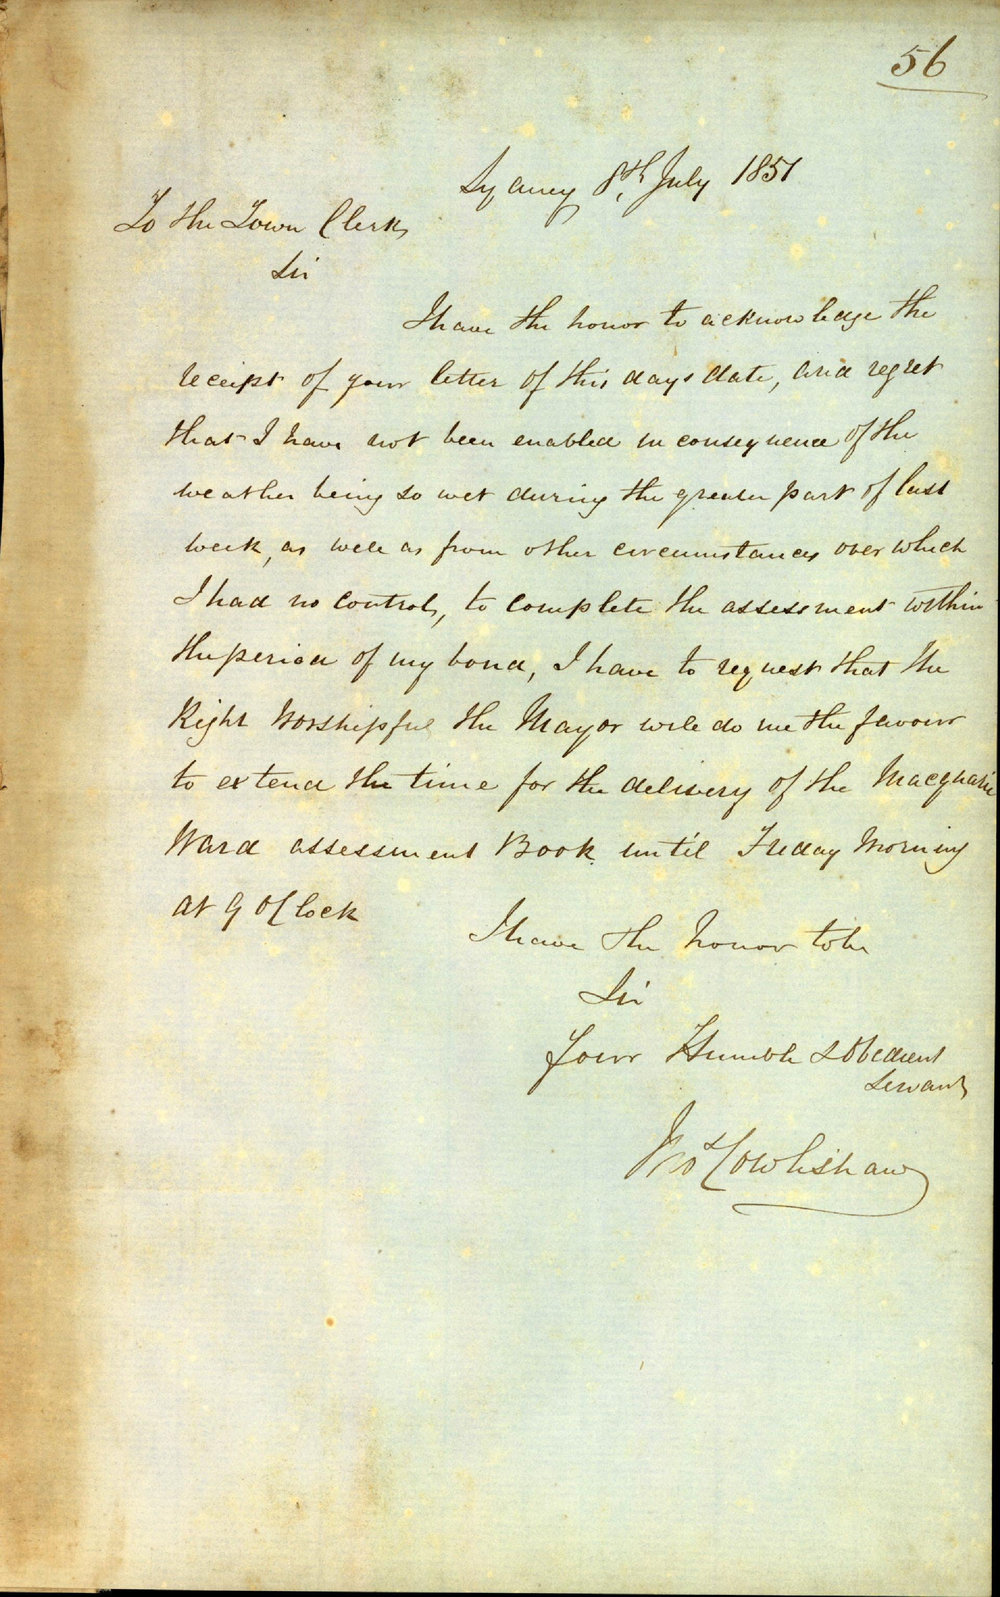 56
Sydney 8th July 1851
To the Town Clerk
Sir
I have the honor to acknowledge the
receipt of your letter of this days date, and regret
that I have not been enabled in consequence of the
weather being so wet during the greater part of last
week, as well as from other circumstances over which
I had no control, to complete the assessment within
the period of my bond, I have to request that the
Right Worshipful the Mayor will do me the favour
to extend the time for the delivery of the Macquarie
Ward assessment Book until Friday Morning
at 9 OClock
I have the honor to be
Sir
Your Humble & Obedient
Servant
Jno Cowlishaw